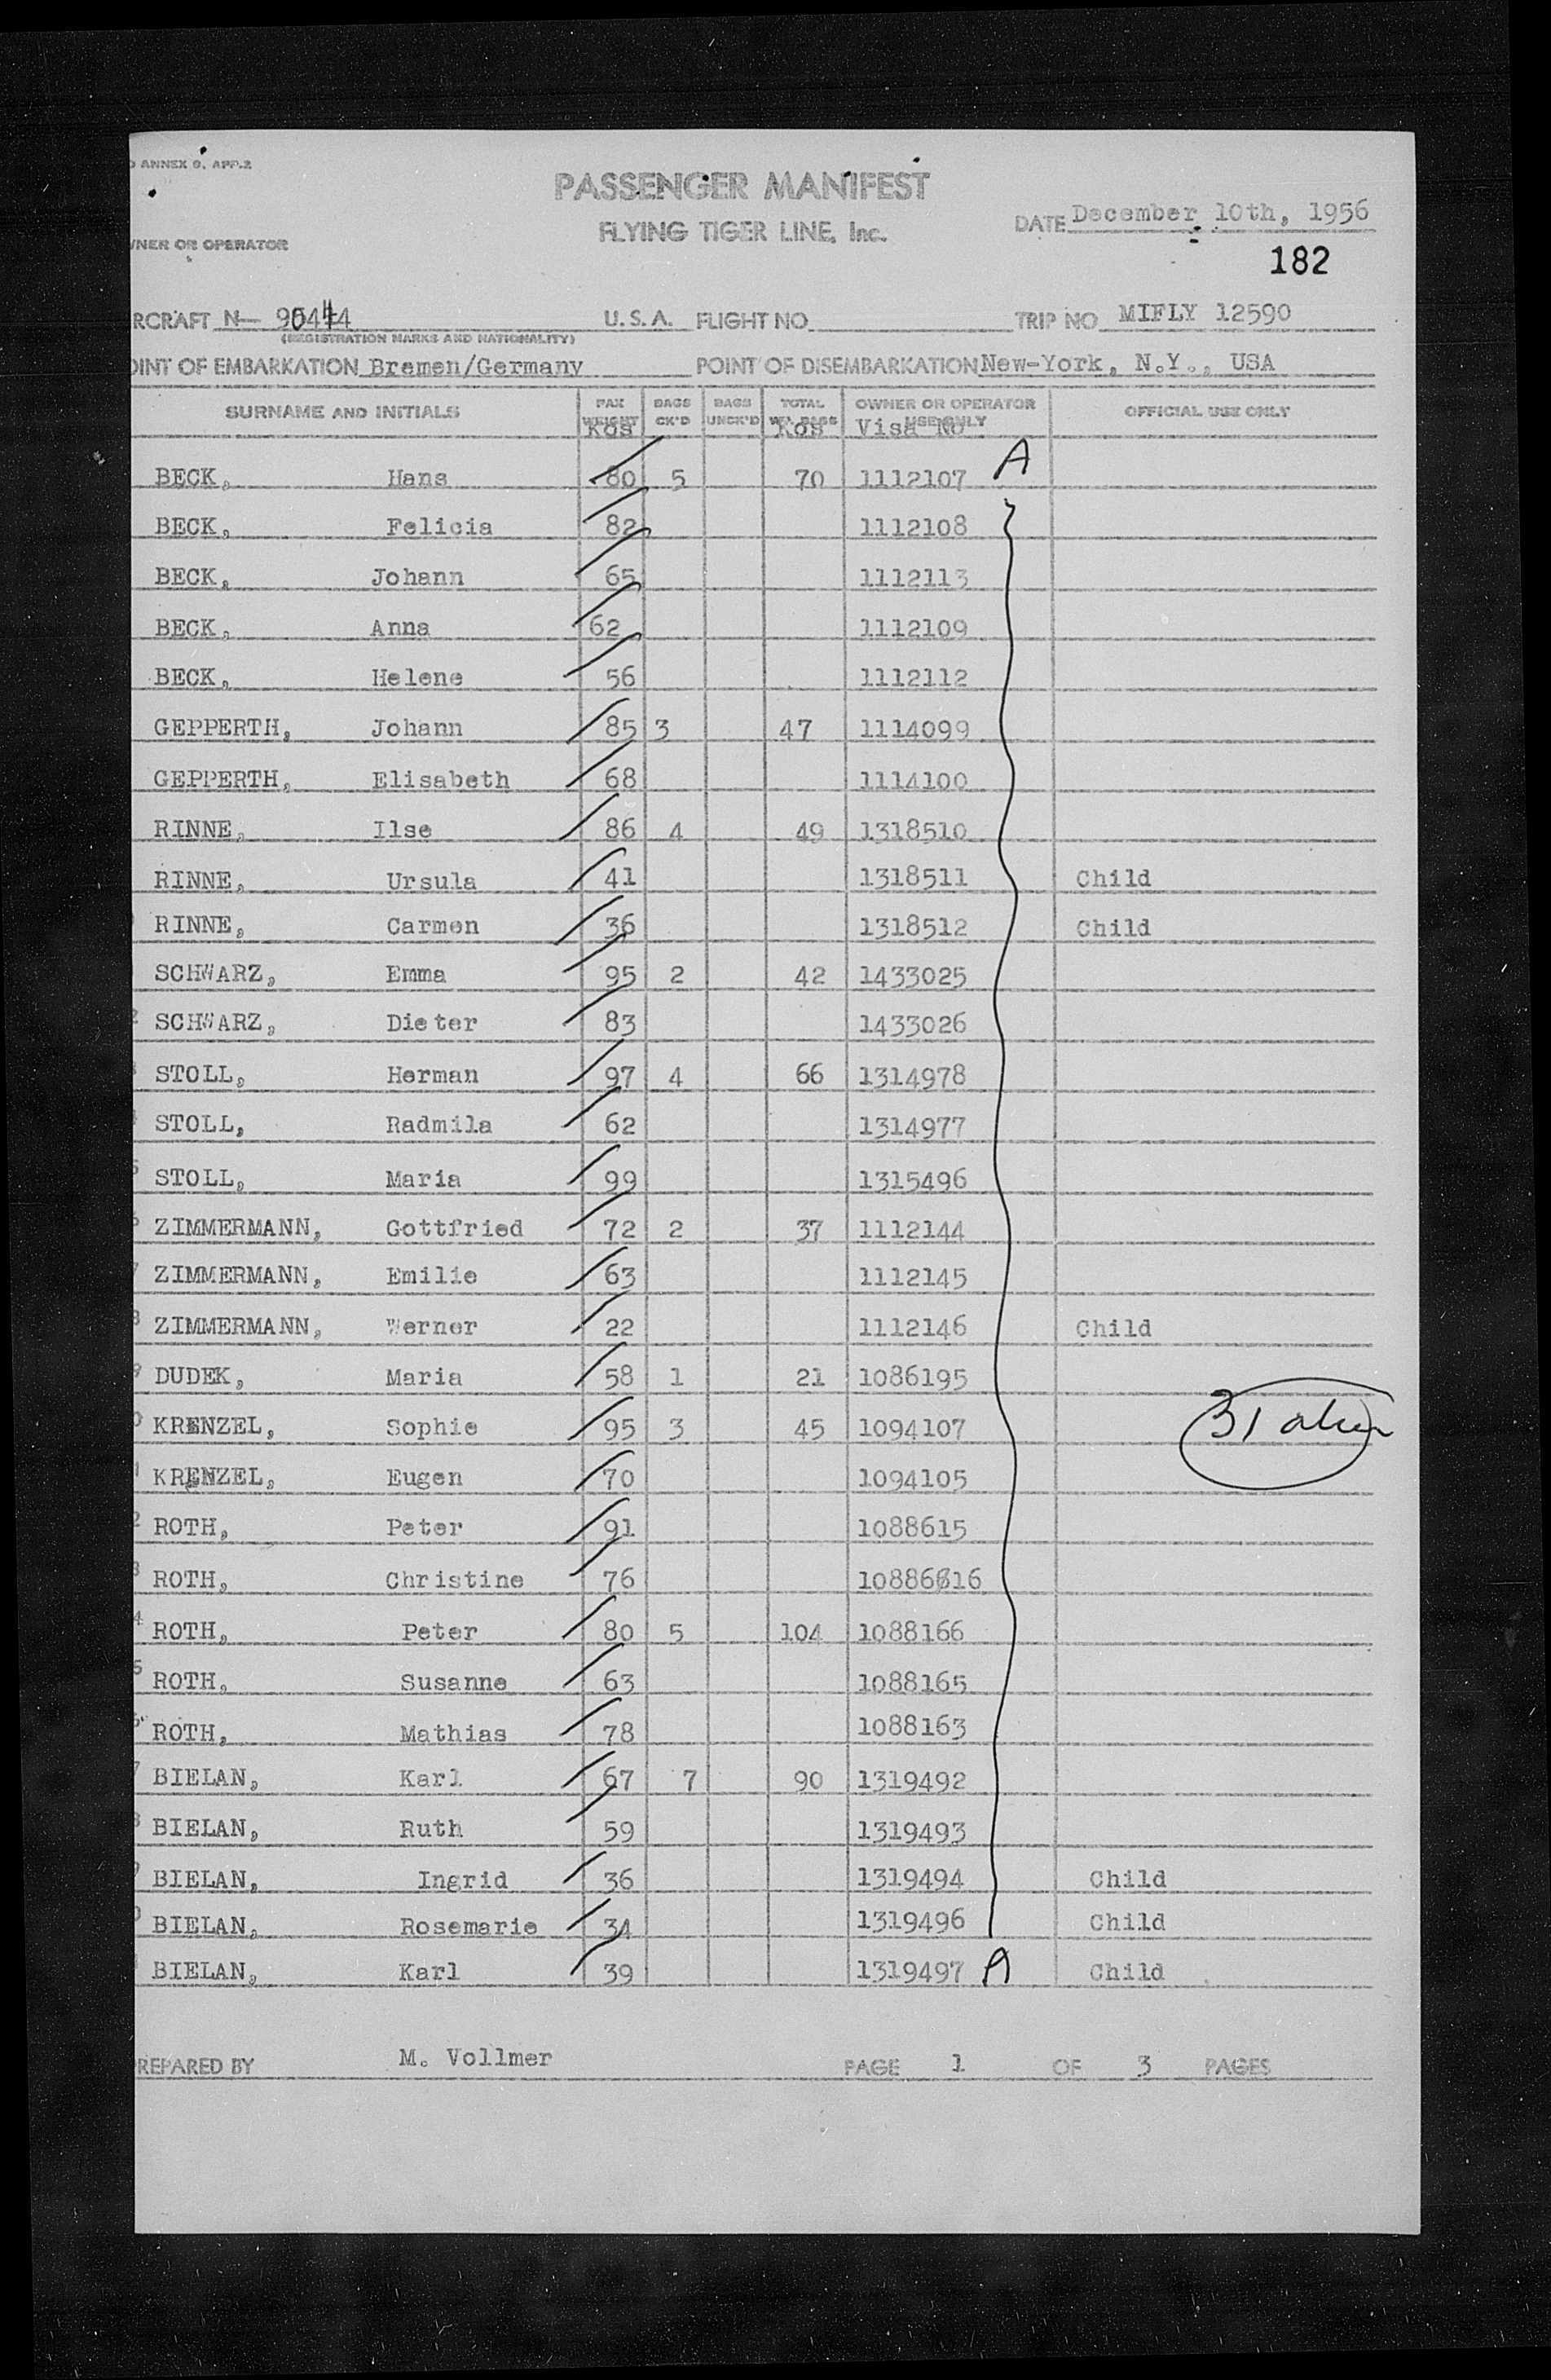 O ANNEX 9, APP.2
PASSENGER MANIFEST
FLYING TIGER LINE, Inc.
DATE December 10th, 1956
WNER OR OPERATOR
182
RCRAFT N— 90444 U.S.A. FLIGHT NO TRIP NO MIFLY 12590
(REGISTRATION MARKS AND NATIONALITY)
OINT OF EMBARKATION Bremen/Germany POINT OF DISEMBARKATION New-York, N.Y., USA
SURNAME AND INITIALS PAX WEIGHT Kgs BAGS CK'D BAGS UNCK'D TOTAL WT. BAGS Kgs OWNER OR OPERATOR USE ONLY Visa No OFFICIAL USE ONLY
BECK, Hans 80 5 70 1112107 A
BECK, Felicia 82 1112108
BECK, Johann 65 1112113
BECK, Anna 62 1112109
BECK, Helene 56 1112112
GEPPERTH, Johann 85 3 47 1114099
GEPPERTH, Elisabeth 68 1114100
RINNE, Ilse 86 4 49 1318510
RINNE, Ursula 41 1318511 Child
RINNE, Carmen 36 1318512 Child
SCHWARZ, Emma 95 2 42 1433025
2 SCHWARZ, Dieter 83 1433026
3 STOLL, Herman 97 4 66 1314978
4 STOLL, Radmila 62 1314977
5 STOLL, Maria 99 1315496
6 ZIMMERMANN, Gottfried 72 2 37 1112144
7 ZIMMERMANN, Emilie 63 1112145
8 ZIMMERMANN, Werner 22 1112146 Child
9 DUDEK, Maria 58 1 21 1086195
0 KRENZEL, Sophie 95 3 45 1094107 31 alien
1 KRENZEL, Eugen 70 1094105
2 ROTH, Peter 91 1088615
3 ROTH, Christine 76 10886616
4 ROTH, Peter 80 5 104 1088166
5 ROTH, Susanne 63 1088165
6 ROTH, Mathias 78 1088163
7 BIELAN, Karl 67 7 90 1319492
8 BIELAN, Ruth 59 1319493
9 BIELAN, Ingrid 36 1319494 Child
0 BIELAN, Rosemarie 34 1319496 Child
1 BIELAN, Karl 39 1319497 A Child
REPARED BY M. Vollmer PAGE 1 OF 3 PAGES